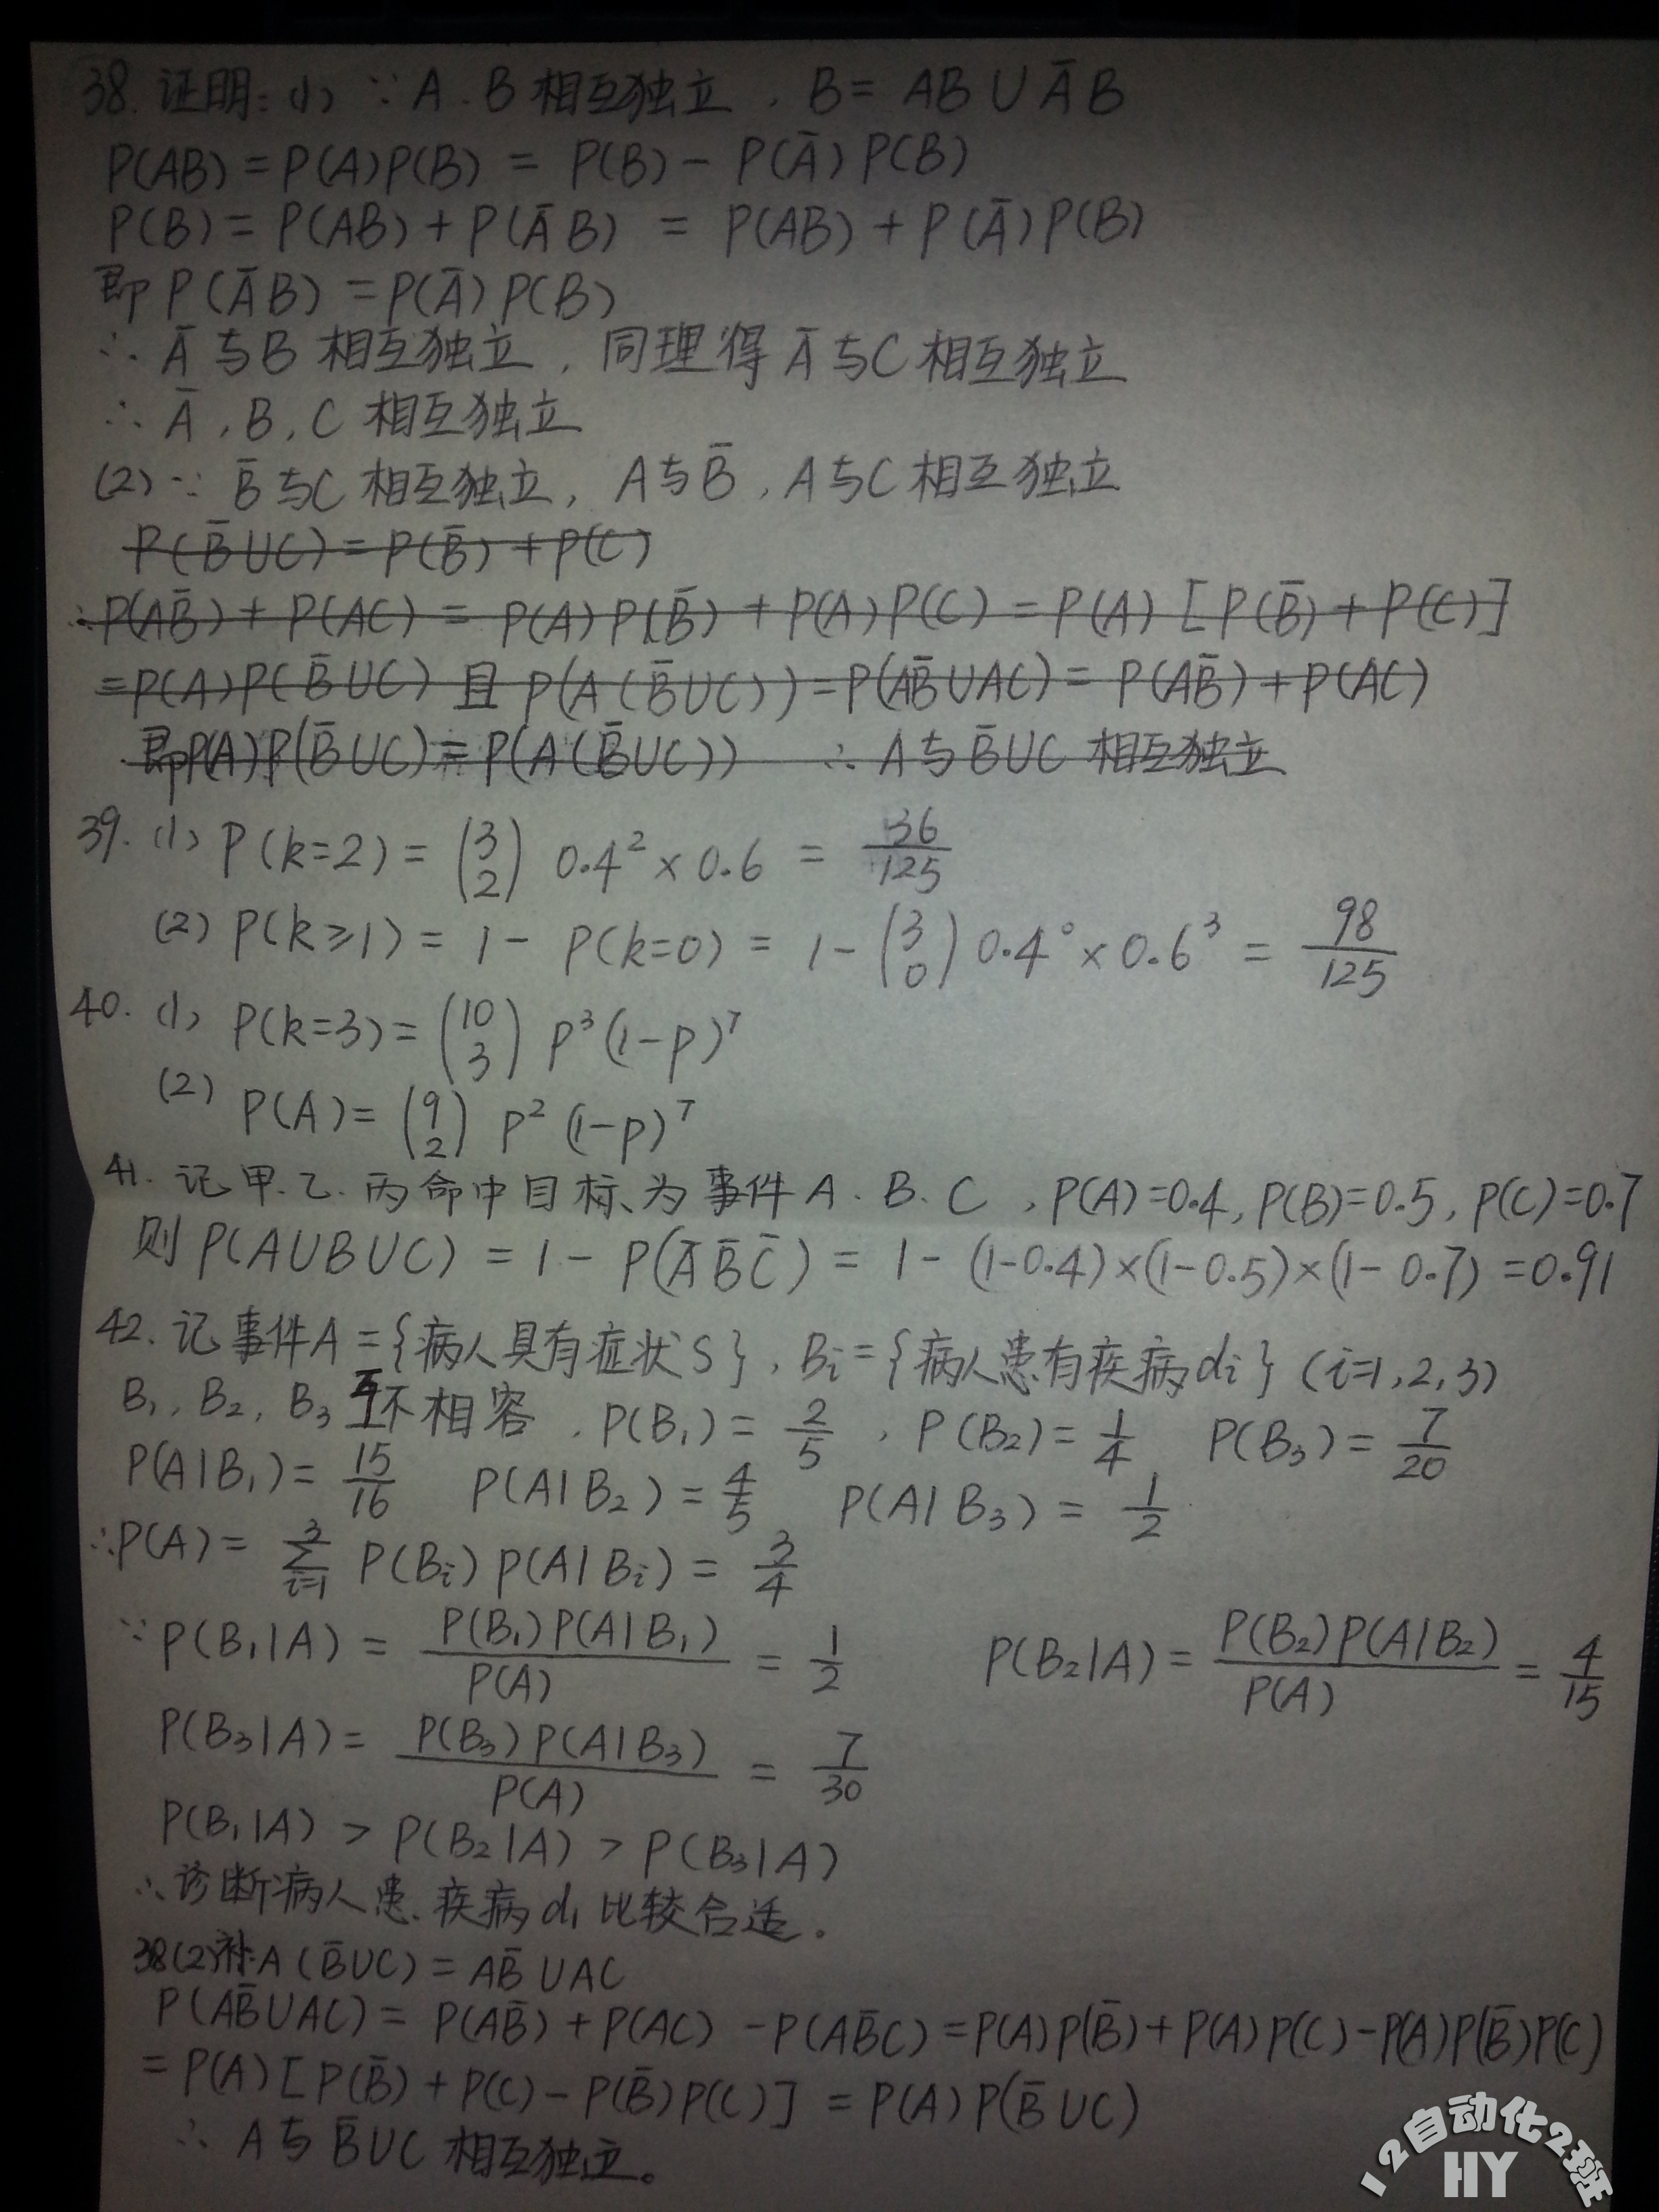 38. 证明: (1) ∵ A. B 相互独立 , B = AB ∪ ĀB
P(AB) = P(A)P(B) = P(B) - P(Ā)P(B)
P(B) = P(AB) + P(ĀB) = P(AB) + P(Ā)P(B)
即 P(ĀB) = P(Ā)P(B)
∴ Ā与B 相互独立 , 同理得 Ā与C 相互独立
∴ Ā , B , C 相互独立
(2) ∵ B̄与C 相互独立, A与B̄ , A与C 相互独立
P(B̄∪C) = P(B̄) + P(C)
∴ P(AB̄) + P(AC) = P(A)P(B̄) + P(A)P(C) = P(A) [P(B̄) + P(C)]
= P(A)P(B̄∪C) 且 P(A(B̄∪C)) = P(AB̄∪AC) = P(AB̄) + P(AC)
即P(A)P(B̄∪C) = P(A(B̄∪C)) ∴ A与B̄∪C 相互独立
39. (1) P(k=2) = (3 2) 0.4² × 0.6 = 36/125
(2) P(k≥1) = 1 - P(k=0) = 1 - (3 0) 0.4⁰ × 0.6³ = 98/125
40. (1) P(k=3) = (10 3) p³(1-p)⁷
(2) P(A) = (9 2) p²(1-p)⁷
41. 记甲.乙.丙命中目标为事件 A . B . C , P(A)=0.4, P(B)=0.5, P(C)=0.7
则 P(A∪B∪C) = 1 - P(ĀB̄C̄) = 1 - (1-0.4)×(1-0.5)×(1-0.7) = 0.91
42. 记事件A = {病人具有症状S} , Bi = {病人患有疾病di} (i=1,2,3)
B₁, B₂, B₃ 互不相容 , P(B₁) = 2/5 , P(B₂) = 1/4 P(B₃) = 7/20
P(A|B₁) = 15/16 P(A|B₂) = 4/5 P(A|B₃) = 1/2
∴ P(A) = ∑³ᵢ₌₁ P(Bi)P(A|Bi) = 3/4
∵ P(B₁|A) = P(B₁)P(A|B₁)/P(A) = 1/2 P(B₂|A) = P(B₂)P(A|B₂)/P(A) = 4/15
P(B₃|A) = P(B₃)P(A|B₃)/P(A) = 7/30
P(B₁|A) > P(B₂|A) > P(B₃|A)
∴ 诊断病人患疾病d₁比较合适。
38(2)补: A(B̄∪C) = AB̄∪AC
P(AB̄∪AC) = P(AB̄) + P(AC) - P(AB̄C) = P(A)P(B̄) + P(A)P(C) - P(A)P(B̄)P(C)
= P(A) [P(B̄) + P(C) - P(B̄)P(C)] = P(A)P(B̄∪C)
∴ A与B̄∪C 相互独立。
12自动化2班
HY